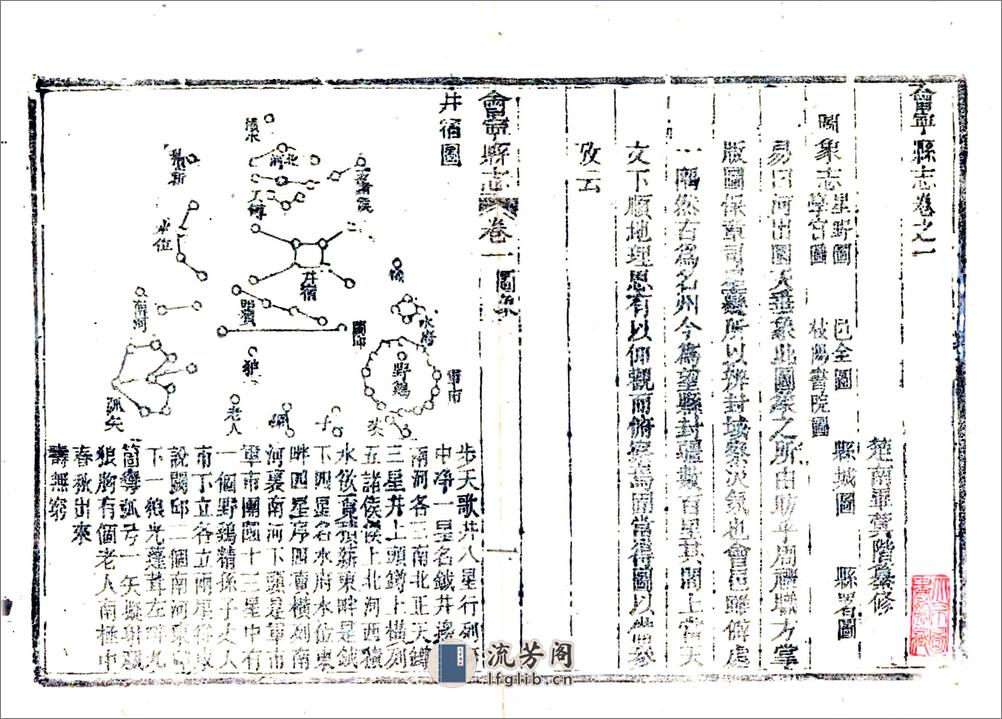 會寧縣志卷之一
楚南畢 階纂修
圖象志
星野圖 邑全圖 縣城圖 縣署圖
學宮圖 枝陽書院圖
易曰河出圖天垂象此圖象之所由昉乎周禮職方掌
版圖保章司星 所以辨封域察災 也會邑雖僻處
一隅然古為名州今為望縣封疆數百里其間上當天
文下順地理思有以仰觀而俯察焉圖當得圖以備參
攷云
會寧縣志 卷一 圖象
一
井宿圖
積水
北河
五諸侯
積薪
天樽
水位
井宿
鉞
四瀆
闕邱
水府
南河
狼
野鷄
軍市
弧矢
老人
孫
子
丈
步天歌井八星行列河
中淨一星名鉞井邊
兩河各三南北正天罇
三星井上頭罇上橫列
五諸侯侯上北河西積
水欲覓積薪東畔是鉞
下四星名水府水位東
畔四星序四瀆橫列南
河裏南河下頭是軍市
軍市團圓十三星中有
一個野鷄精孫子丈人
市下立各立兩星從東
說闕邱二個南河東
下一狼光蓬茸左畔九
個彎弧弓一矢擬射頑
狼胸有個老人南極中
春秋出來
壽無窮
流芳阁
lfglib.cn